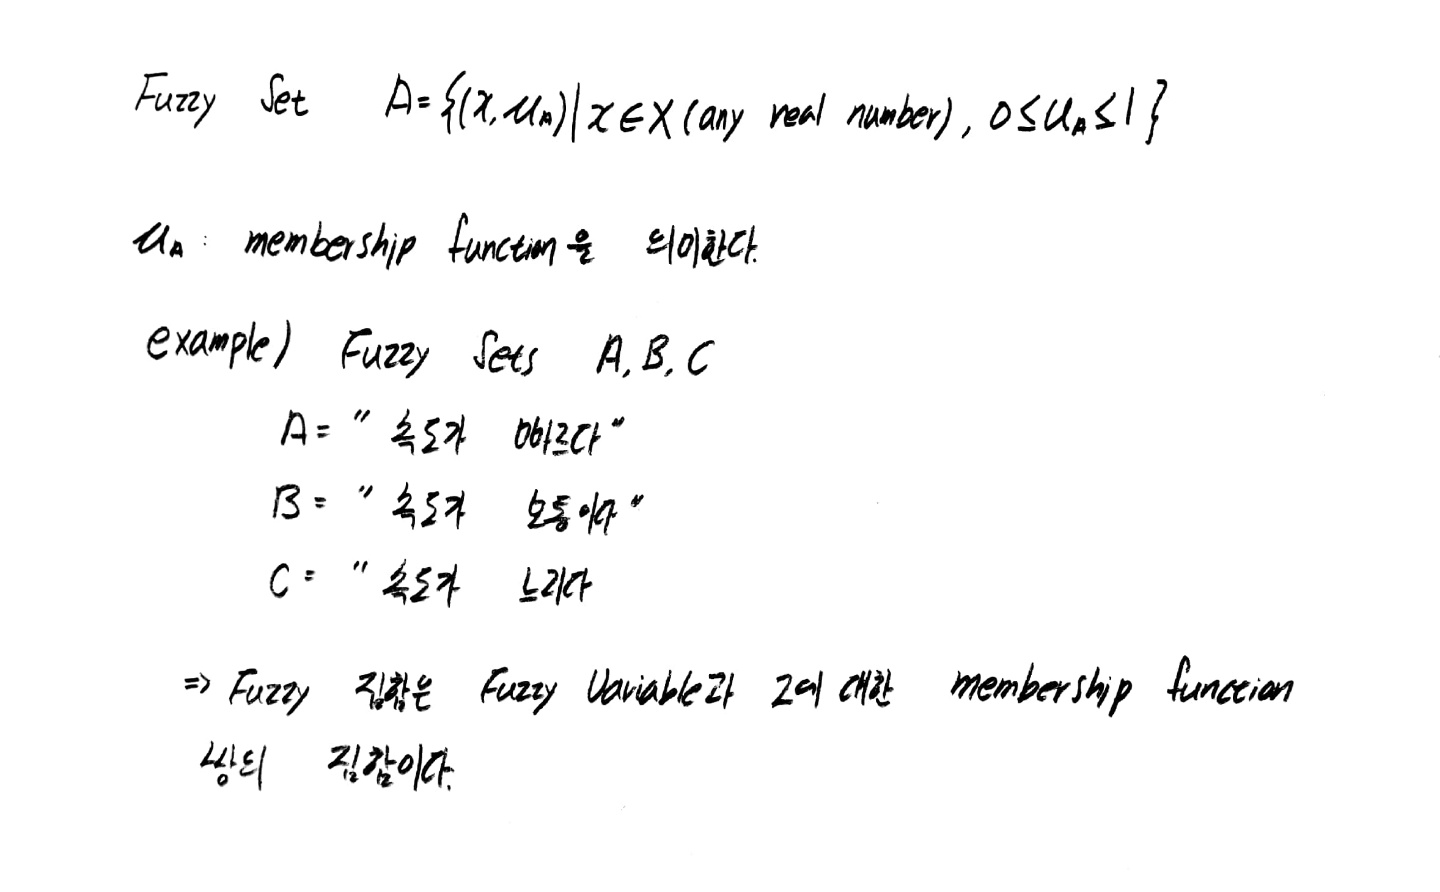 Fuzzy Set A={(x,μA)|x∈X(any real number), 0≤μA≤1}
μA: membership function을 의미한다.
example) Fuzzy Sets A, B, C
A= "속도가 빠르다"
B= "속도가 보통이다"
C= "속도가 느리다
=> Fuzzy 집합은 Fuzzy Variable과 그에 대한 membership function
쌍의 집합이다.